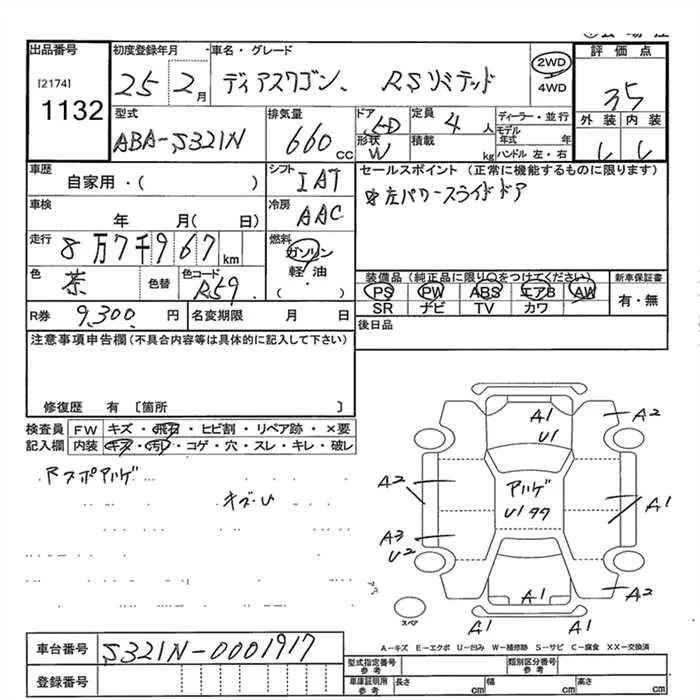 出品番号
[2174]
1132
初度登録年月
25 2月
車名・グレード
ディアスワゴン、 RSリミテッド
2WD
4WD
評価点
35
外装 内装
型式
ABA-S321N
排気量
660 cc
ドア
5D
形状
W
定員
4人
積載
kg
ディーラー・並行
モデル年式 年
ハンドル 左・右
車歴
自家用・( )
シフト
IAT
セールスポイント (正常に機能するものに限ります)
左パワースライドドア
車検
年 月( 日)
冷房
AAC
走行
8万7千967km
燃料
ガソリン
軽・油
・( )
色
茶
色替
色コード
R59
装備品 (純正品に限り○をつけてください)
PS PW ABS エアB AW
SR ナビ TV カワ
新車保証書
有・無
R券
9,300 円
名変期限 月 日
後日品
注意事項申告欄(不具合内容等は具体的に記入して下さい)
修復歴 有 〔箇所 〕
検査員
記入欄
FW キズ・飛石・ヒビ割・リペア跡・×要
内装 キズ・汚レ・コゲ・穴・スレ・キレ・破レ
キズ・U
A1
U1
A2
A2
アハゲ
U1
A1
A3
U2
A1
A2
スペア
A1
A1
A-キズ E-エクボ U-凹み W-補修跡 S-サビ C-腐食 XX-交換済
車台番号
S321N-0001917
登録番号
型式指定番号
参考
類別区分番号
参考
車庫証明用
参考
長さ cm
幅 cm
高さ cm